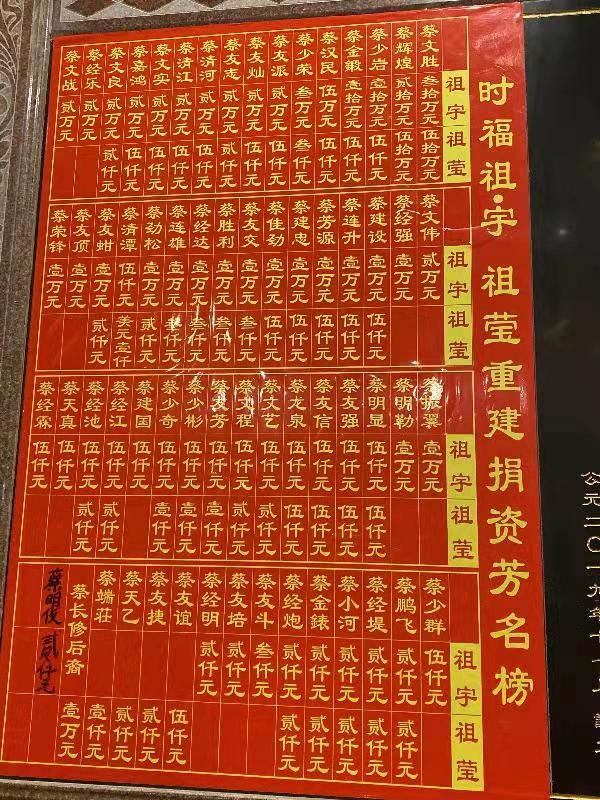 时福祖·宇 祖莹重建捐资芳名榜
祖宇 祖莹
蔡文胜 叁拾万元 伍拾万元
蔡辉煌 贰拾万元 伍拾万元
蔡少岩 壹拾万元 伍仟元
蔡金鍛 壹拾万元 伍仟元
蔡汉民 伍万元 伍仟元
蔡少荣 叁万元 叁仟元
蔡友派 贰万元 伍仟元
蔡友灿 贰万元 伍仟元
蔡友志 贰万元 贰仟元
蔡清河 贰万元 伍仟元
蔡清江 贰万元 伍仟元
蔡文实 贰万元 伍仟元
蔡嘉鸿 贰万元 伍仟元
蔡文良 贰万元 贰仟元
蔡经乐 贰万元
蔡文战 贰万元
祖宇 祖莹
蔡文伟 贰万元
蔡经强 壹万元
蔡建设 壹万元 伍仟元
蔡连升 壹万元 伍仟元
蔡芳源 壹万元 伍仟元
蔡建忠 壹万元 伍仟元
蔡佳劲 壹万元 伍仟元
蔡友交 壹万元 叁仟元
蔡胜利 壹万元 叁仟元
蔡经达 壹万元 叁仟元
蔡连雄 壹万元 叁仟元
蔡劲松 壹万元 贰仟元
蔡清潭 伍仟元 美元壹仟
蔡友蚶 壹万元 贰仟元
蔡友顶 壹万元
蔡荣锋 壹万元
祖宇 祖莹
蔡振翼 壹万元
蔡明勒 壹万元
蔡明显 伍仟元 伍仟元
蔡友强 伍仟元 伍仟元
蔡友信 伍仟元 伍仟元
蔡龙泉 伍仟元 伍仟元
蔡文艺 伍仟元 贰仟元
蔡文程 伍仟元 贰仟元
蔡友芳 伍仟元 壹仟元
蔡少彬 伍仟元 壹仟元
蔡少奇 伍仟元 壹仟元
蔡建国 伍仟元
蔡经江 伍仟元 贰仟元
蔡经池 伍仟元 贰仟元
蔡天真 伍仟元
蔡经霖 伍仟元
祖宇 祖莹
蔡少群 伍仟元
蔡鹏飞 贰仟元 贰仟元
蔡经堤 贰仟元 贰仟元
蔡小河 贰仟元 贰仟元
蔡金錶 贰仟元 贰仟元
蔡经炮 贰仟元 贰仟元
蔡友斗 叁仟元
蔡友培 贰仟元
蔡经明 贰仟元
蔡友谊 伍仟元
蔡友捷 贰仟元
蔡天乙 贰仟元
蔡端莊 壹仟元
蔡长修后裔 壹万元
蔡明俊 贰仟元
公元二〇一九年十一月